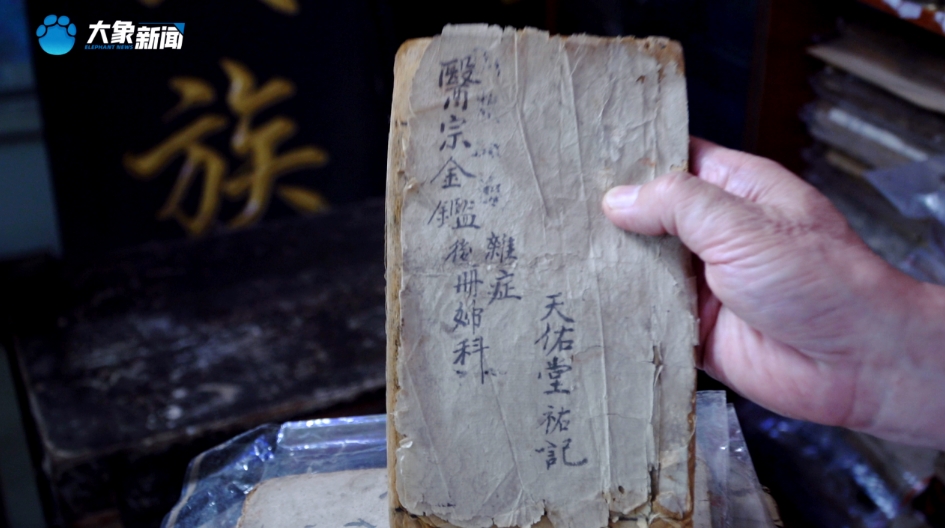 大象新闻
ELEPHANT NEWS
族
醫宗金鑑後册婦科
雜症
天佑堂祐記